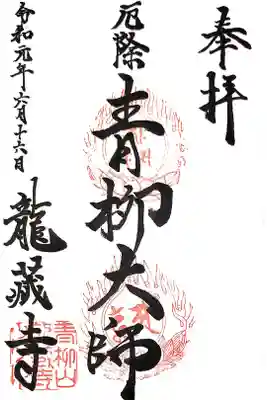 奉拝
厄除
青柳大師
龍蔵寺
令和元年六月十六日
青柳山